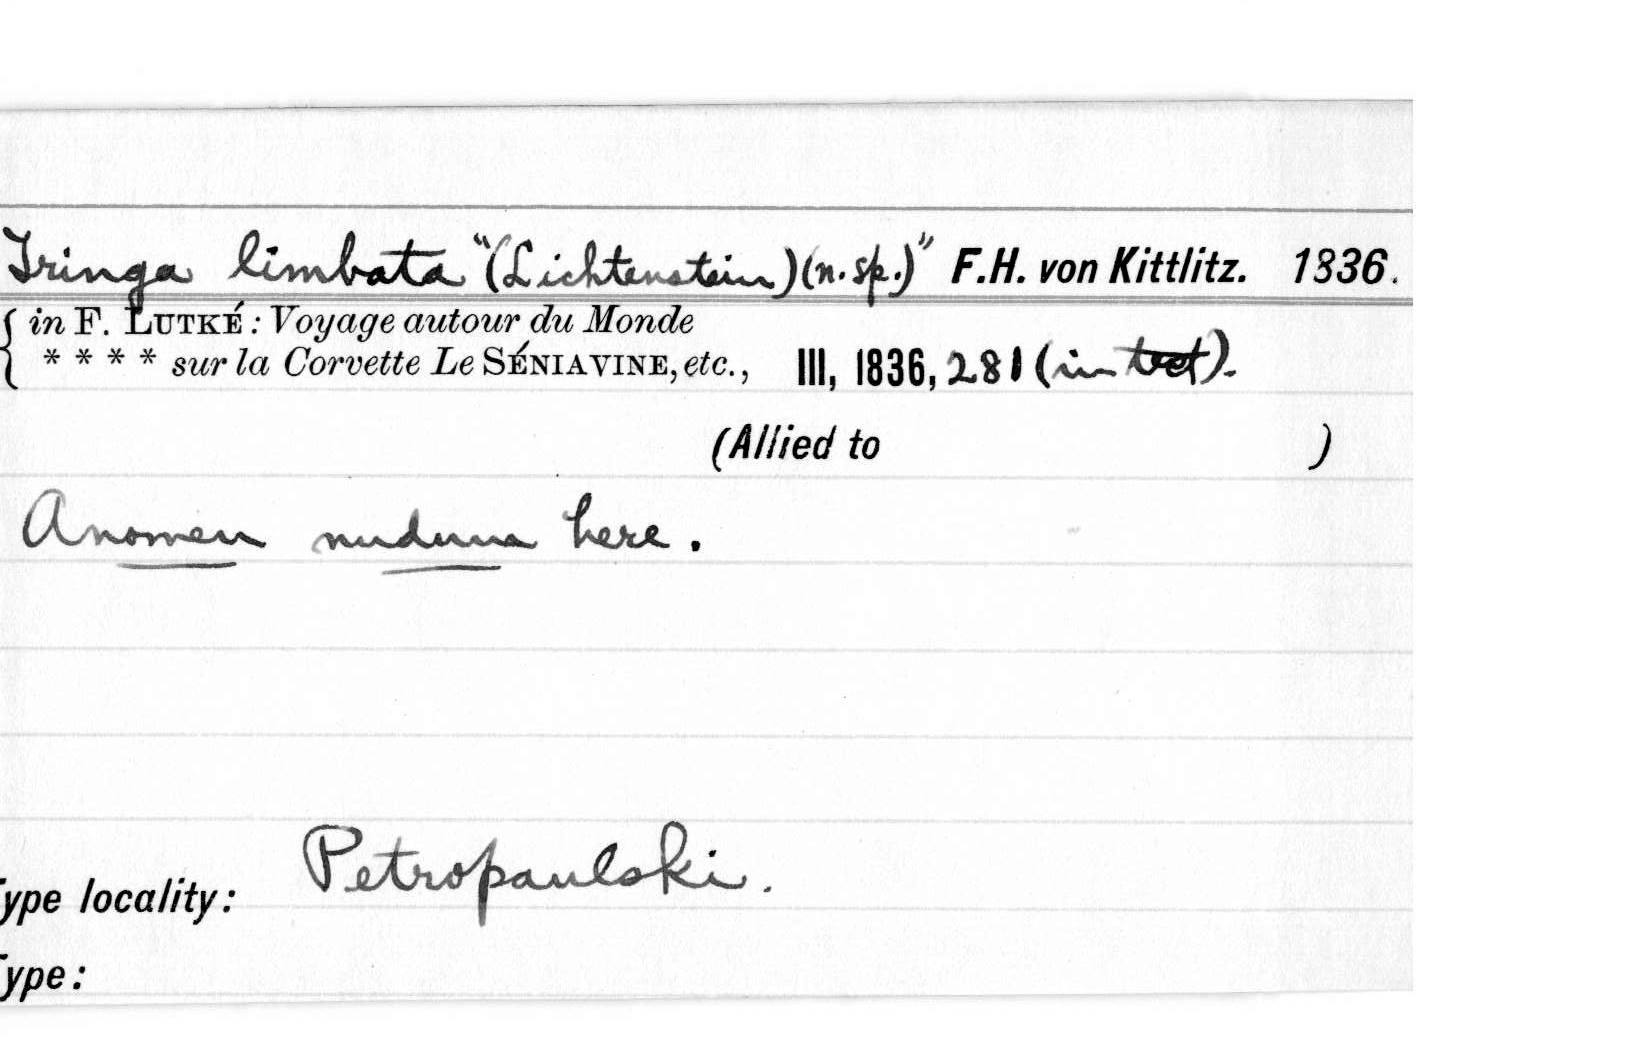 Tringa limbata "(Lichtenstein)(n.sp.)" F.H. von Kittlitz. 1836.
in F. LUTKÉ: Voyage autour du Monde
* * * * sur la Corvette Le SÉNIAVINE, etc., III, 1836, 281 (in text).
(Allied to )
A nomen nudum here.
Type locality: Petropaulski.
Type: